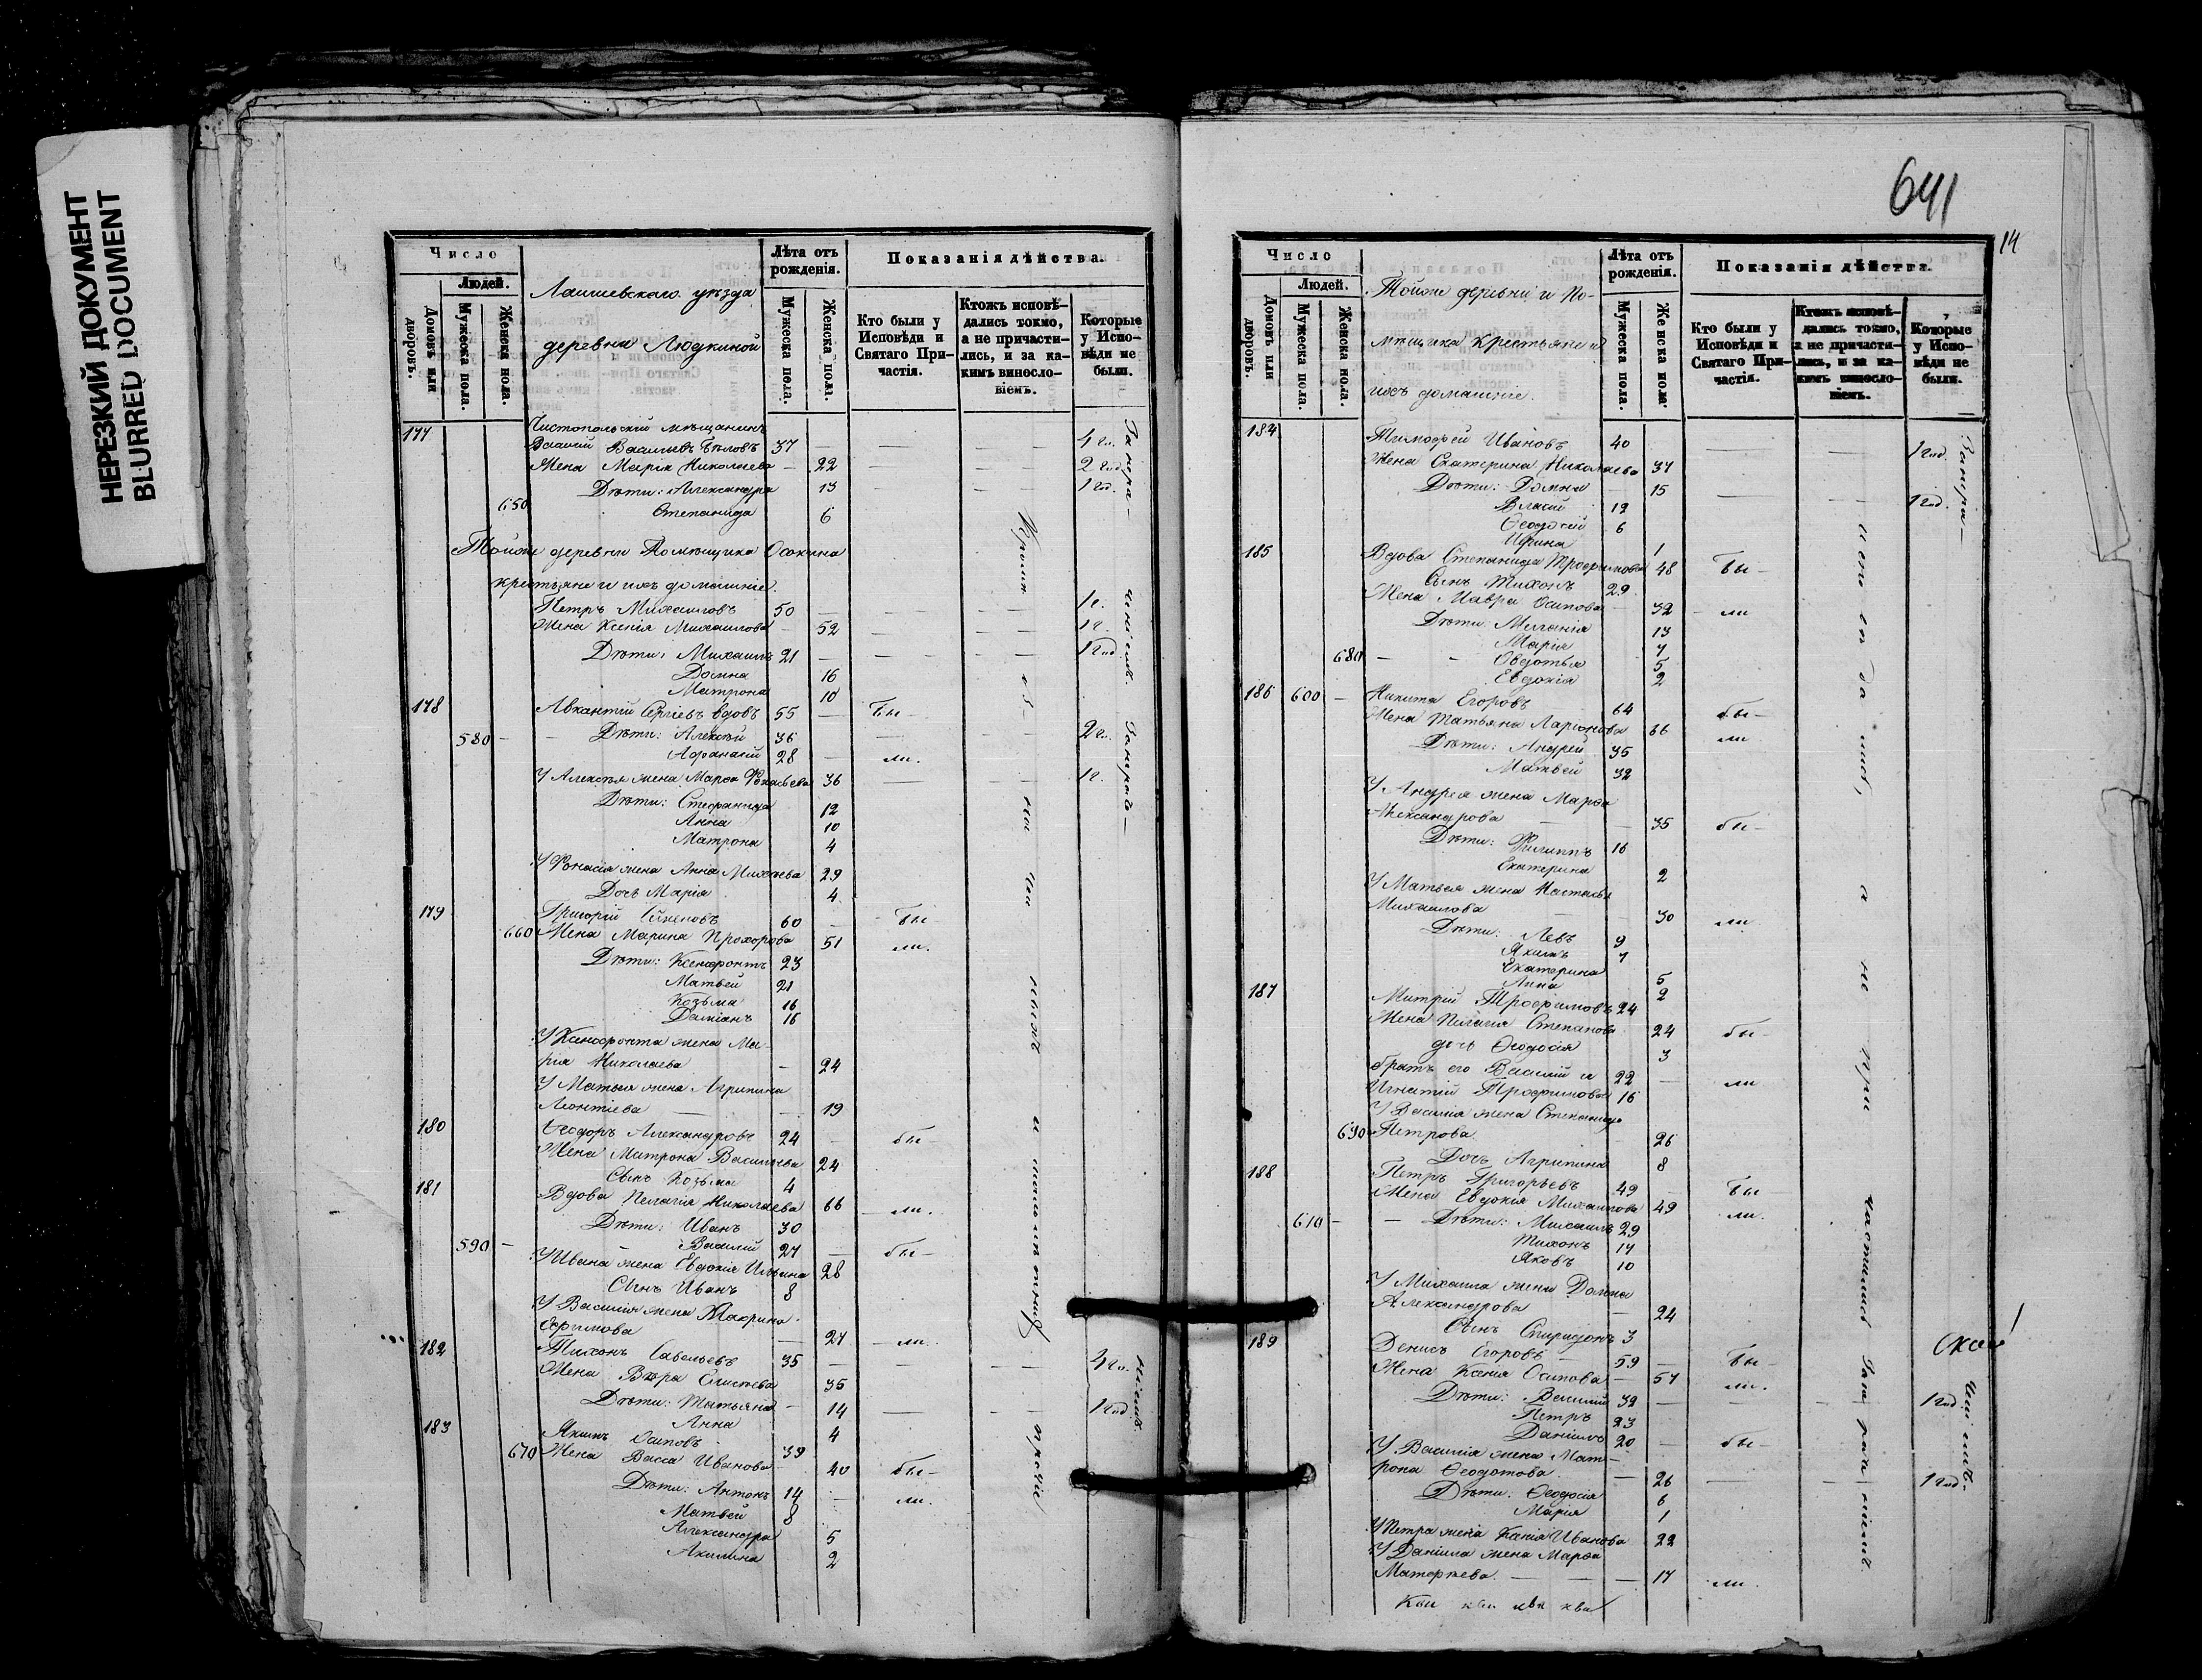 НЕРЕЗКИЙ ДОКУМЕНТ
BLURRED DOCUMENT
Число
Людей.
Домовъ или дворовъ.
Мужеска пола.
Женска пола.
Лаишевскаго уѣзда
деревни Людкиной
Лѣта отъ рожденія.
Мужеска пола.
Женска пола.
Показанія дѣйства.
Кто были у Исповѣди и Святаго Причастія.
Ктожъ исповѣдались токмо, а не причастились, и за какимъ винословіемъ.
Которые у Исповѣди не были.
177 Чистопольскій мѣщанинъ
Василій Васильевъ Бѣловъ 37 — — — 4 го.
Жена Марія Николаева — 22 — — 2 год.
Дѣти: Александра 13 — — 1 го.
650 Степанида 6
Тойже деревни Помѣщика Осокина
крестьяне и ихъ домашніе.
Петръ Михаиловъ 50 — — — 1 г.
Жена Ксенія Михаилова — 52 — — 1 г.
Дѣти: Михаилъ 21 — — — 1 год
Домна 16
Матрона 10
178 Сергіевъ вдовъ 55 — Бы —
580 — — Дѣти: Алексѣй 36 — — 2 го.
Афанасій 28 — ли.
У Алексѣя жена Марѳа 36 — — 1 г.
Дѣти: Стефанида 12
Анна 10
Матрона 4
жена Анна 29
Дочь Марія 4
179 Григорій 60 — Бы —
660 Жена Марина Прохорова 51 ли.
Дѣти: Ксенофонтъ 23
Матвей 21
Козьма 16
Даміанъ 16
У Ксенофонта жена Ма-
рія Николаева — 24
У Матвея жена Агрипина
Леонтіева — — 19
180 Ѳеодоръ Александровъ 24 — бы —
Жена Матрона Васильева 24
Сынъ Козьма 4
181 Вдова Пелагія Николаева 66 ли.
Дѣти: Иванъ 30
590 — — Василій 27 — бы —
У Ивана жена Евдокія Ильина 28
Сынъ Иванъ 8
У Василія жена
Ефимова — 27 — ли.
182 Тихонъ Савельевъ 35 — — — 4 го.
Жена Вѣра 35
Дѣти: Татьяна — 14 — — 1 год
Анна 4
183 Якимъ Осиповъ 39
670 Жена Васса Иванова 40 бы —
Дѣти: Антонъ 14 — ли.
Матвей 8
Александра 5
Акилина 2
641
14
Число
Людей.
Домовъ или дворовъ.
Мужеска пола.
Женска пола.
Тойже деревни и По-
мѣщика Крестьяне и
ихъ домашніе.
Лѣта отъ рожденія.
Мужеска пола.
Женска пола.
Показанія дѣйства.
Кто были у Исповѣди и Святаго Причастія.
Ктожъ исповѣдались токмо, а не причастились, и за какимъ винословіемъ.
Которые у Исповѣди не были.
184 Тимофей Ивановъ 40 — — 1 год.
Жена Екатерина Николаева 37
Дѣти: Домна — 15 — — 1 год.
Власій 12
Ѳеодосій 6
Ирина 1
185 Вдова Степанида Трофимова 48 Бы —
Сынъ Тихонъ 29
Жена Мавра Осипова — 32 — ли
Дѣти: Меланія 13
Марія 7
680 — — Овдотья 5
Евдокія 2
186 600 — Никита Егоровъ 64 бы —
Жена Татьяна Ларіонова 66 ли
Дѣти: Андрей 35
Матвей 32
У Андрея жена Марѳа
Александрова — — 35 бы —
Дѣти: Филиппъ 16
Екатерина 2
У Матвея жена Настасья
Михаилова — 30 ли
Дѣти: Левъ 9
Якимъ 7
Екатерина 5
Анна 2
187 Митрій Трофимовъ 24
Жена Пелагія Степанова 24 бы —
дочь Ѳеодосія 3
братъ его Василій и 22 — ли
Игнатій Трофимовы 16
У Василія жена Степанида
690 Петрова 26
Дочь Агрипина 8
188 Петръ Григорьевъ 49 — Бы —
Жена Евдокія Михаилова 49 ли.
610 — — Дѣти: Михаилъ 29
Тихонъ 14
Яковъ 10
У Михаила жена Домна
Александрова — 24
Сынъ Спиридонъ 3
189 Денисъ Егоровъ — 59 — Бы —
Жена Ксенія Осипова — 57 ли.
Дѣти: Василій 32 — — — 1 год
Петръ 23
Даніилъ 20 — бы —
У Василія жена Мат-
рона Ѳеодотова. — 26 — — 1 год.
Дѣти: Ѳеодосія 6
Марія 1
У Петра жена Ксенія Иванова 22
У Даніила жена Марѳа
— — 17 ли.